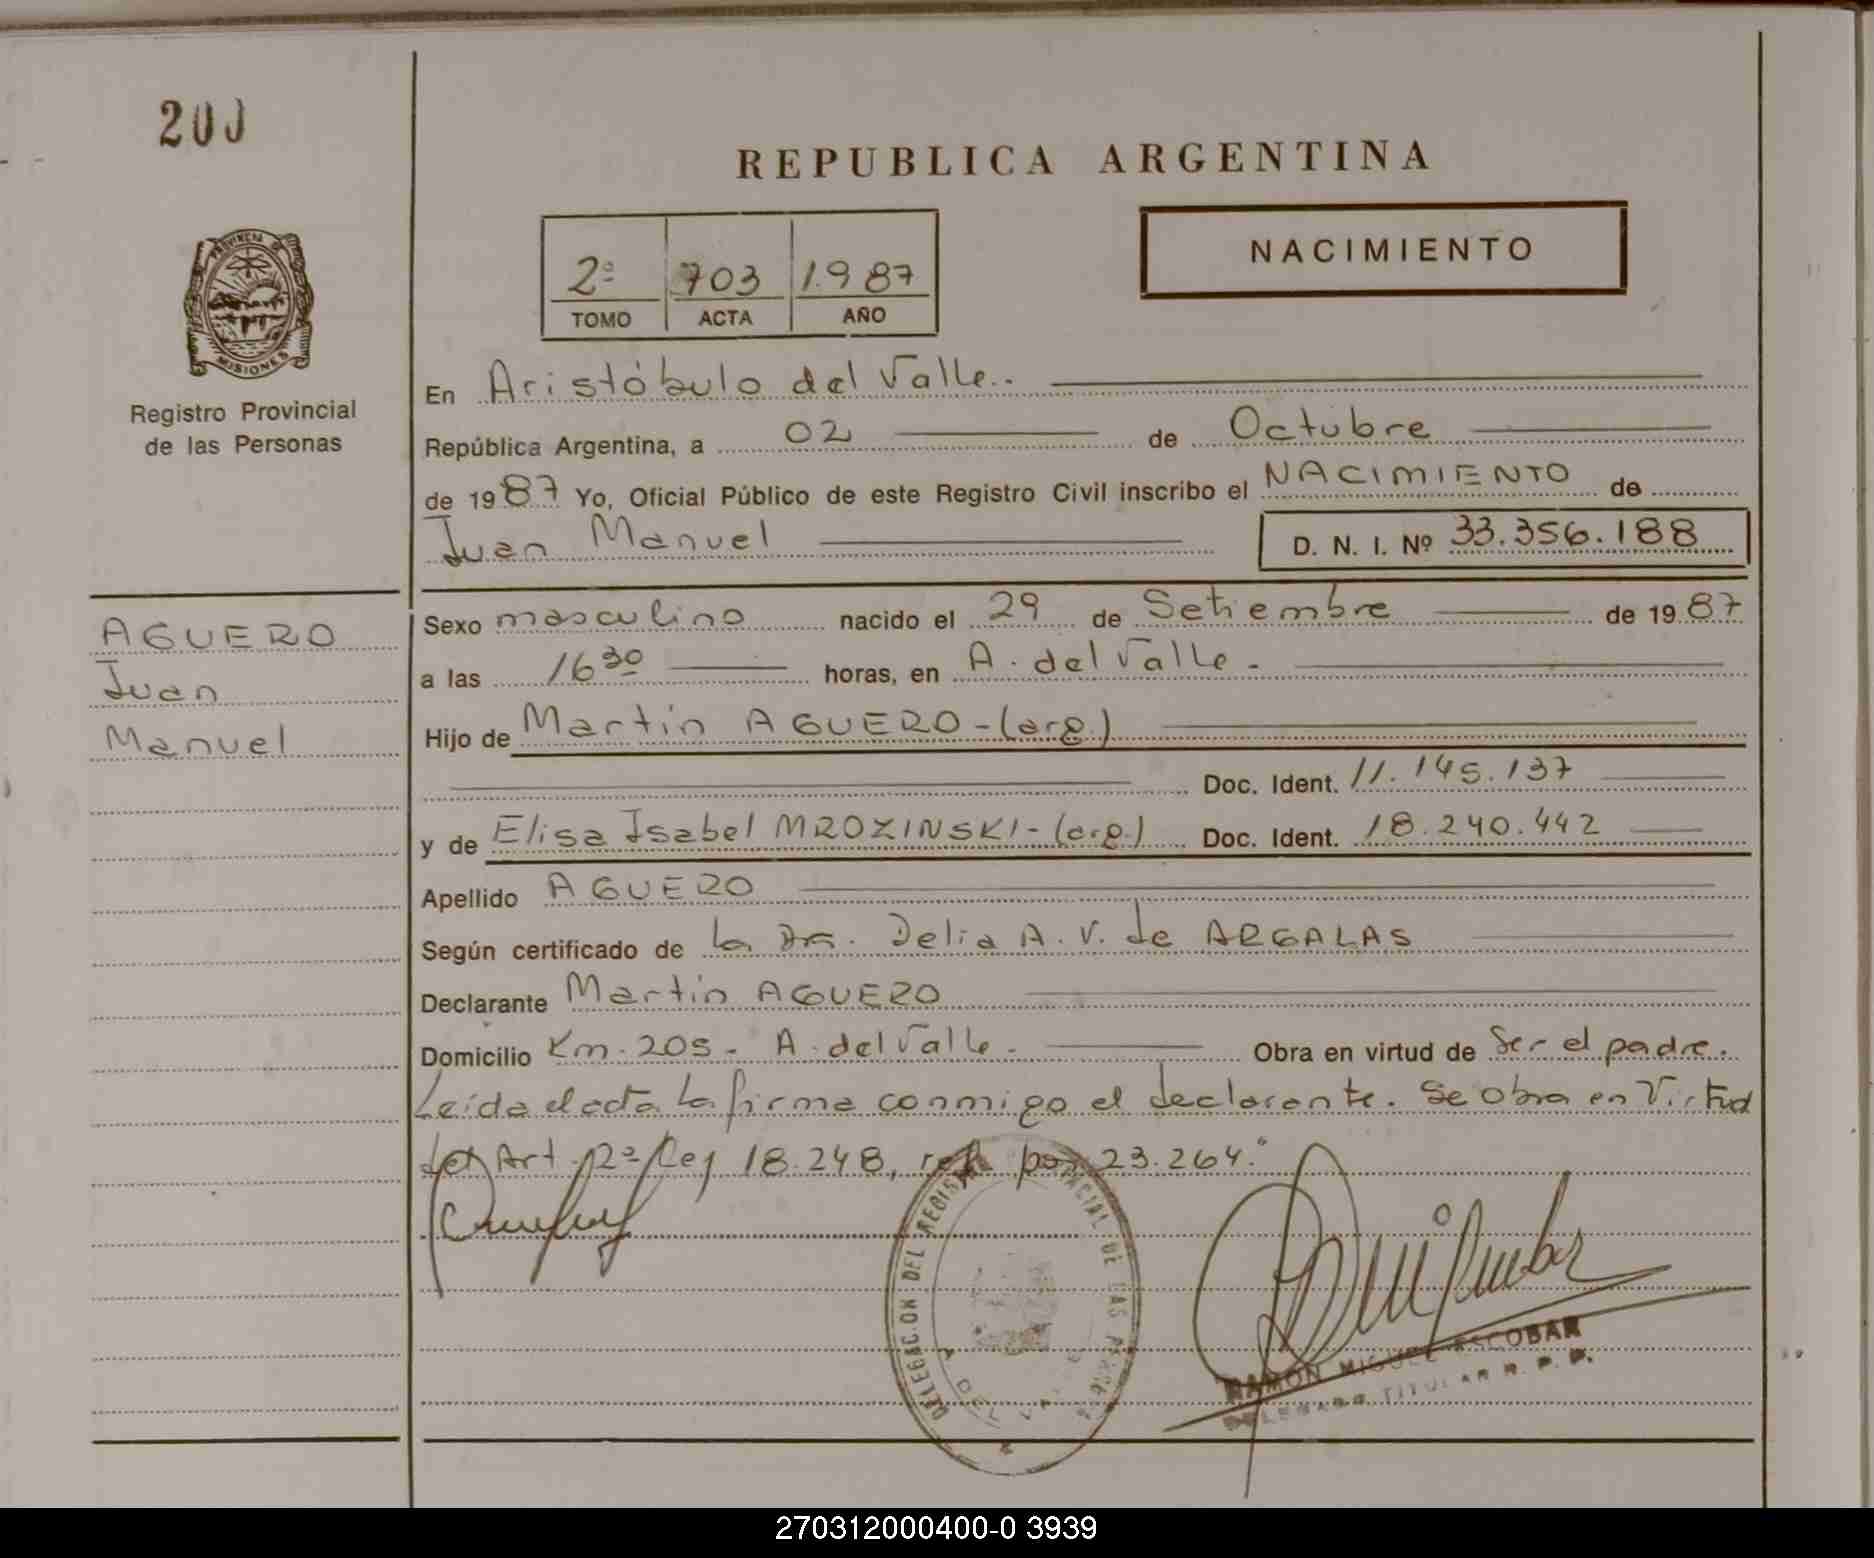 200
REPUBLICA ARGENTINA
NACIMIENTO
2º 703 1.987
TOMO ACTA AÑO
PROVINCIA DE
MISIONES
Registro Provincial
de las Personas
En Aristóbulo del Valle.
República Argentina, a 02 de Octubre
de 1987 Yo, Oficial Público de este Registro Civil inscribo el NACIMIENTO de
Juan Manuel D. N. I. Nº 33.356.188
AGUERO
Juan
Manuel
Sexo masculino nacido el 29 de Setiembre de 1987
a las 16 30 horas, en A. del Valle.
Hijo de Martin AGUERO-(arg.)
Doc. Ident. 11.145.137
y de Elisa Isabel MROZINSKI-(arg.) Doc. Ident. 18.240.442
Apellido AGUERO
Según certificado de la Dra. Delia A. V. de ARGALAS
Declarante Martin AGUERO
Domicilio Km. 205- A. del Valle. Obra en virtud de Ser el padre.
Leida el acta la firma conmigo el declarante. Se obra en Virtud
del Art. 2º Ley 18.248, ref. por 23.264."
DELEGACION DEL REGISTRO PROVINCIAL DE LAS PERSONAS
A. DEL VALLE
RAMON MIGUEL ESCOBAR
DELEGADO TITULAR R. P. P.
270312000400-0 3939